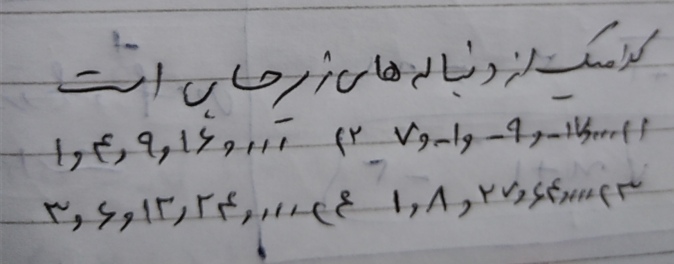 کدامیک از دنباله های زیر حسابی است
۱) ۷ و -۱ و -۹ و -۱۷ و .... ۲) ۱ و ۴ و ۹ و ۱۶ و ...
۳) ۱ و ۸ و ۲۷ و ۶۴ و .... ۴) ۳ و ۶ و ۱۲ و ۲۴ و ....